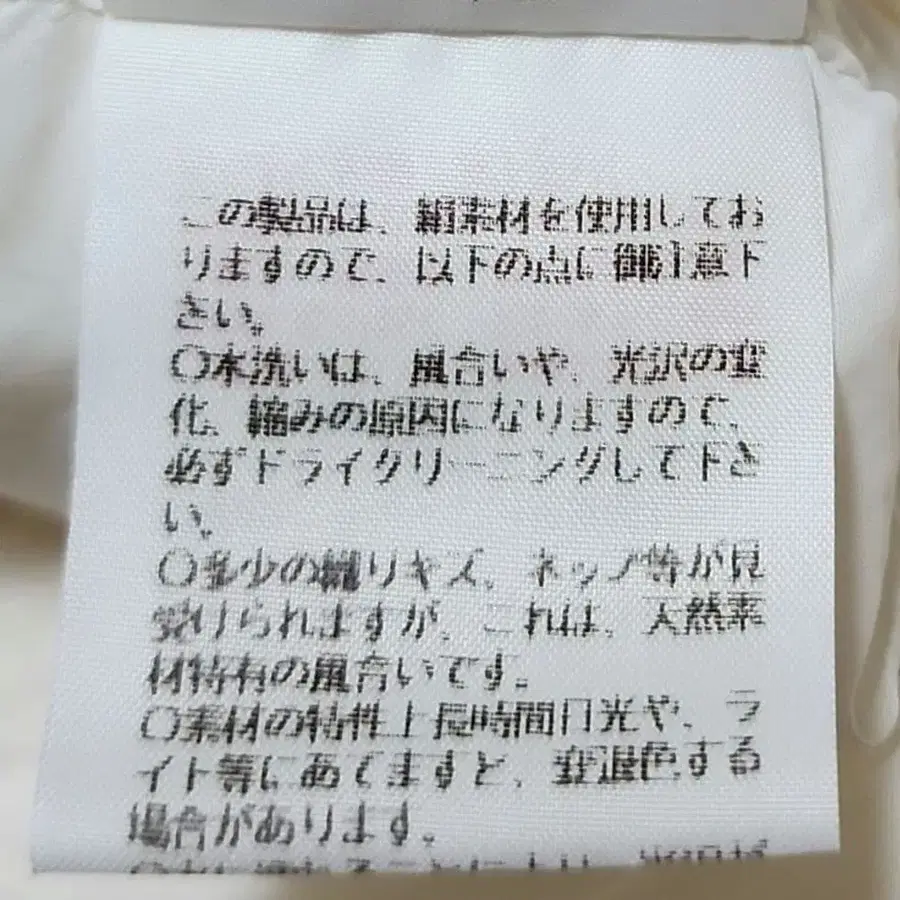 この製品は、絹素材を使用してお
りますので、以下の点に御注意下
さい。
〇水洗いは、風合いや、光沢の変
化、縮みの原因になりますので、
必ずドライクリーニングして下さ
い。
〇多少の織りキズ、ネップ等が見
受けられますが、これは、天然素
材特有の風合いです。
〇素材の特性上長時間日光や、ラ
イト等にあてますと、変退色する
場合があります。